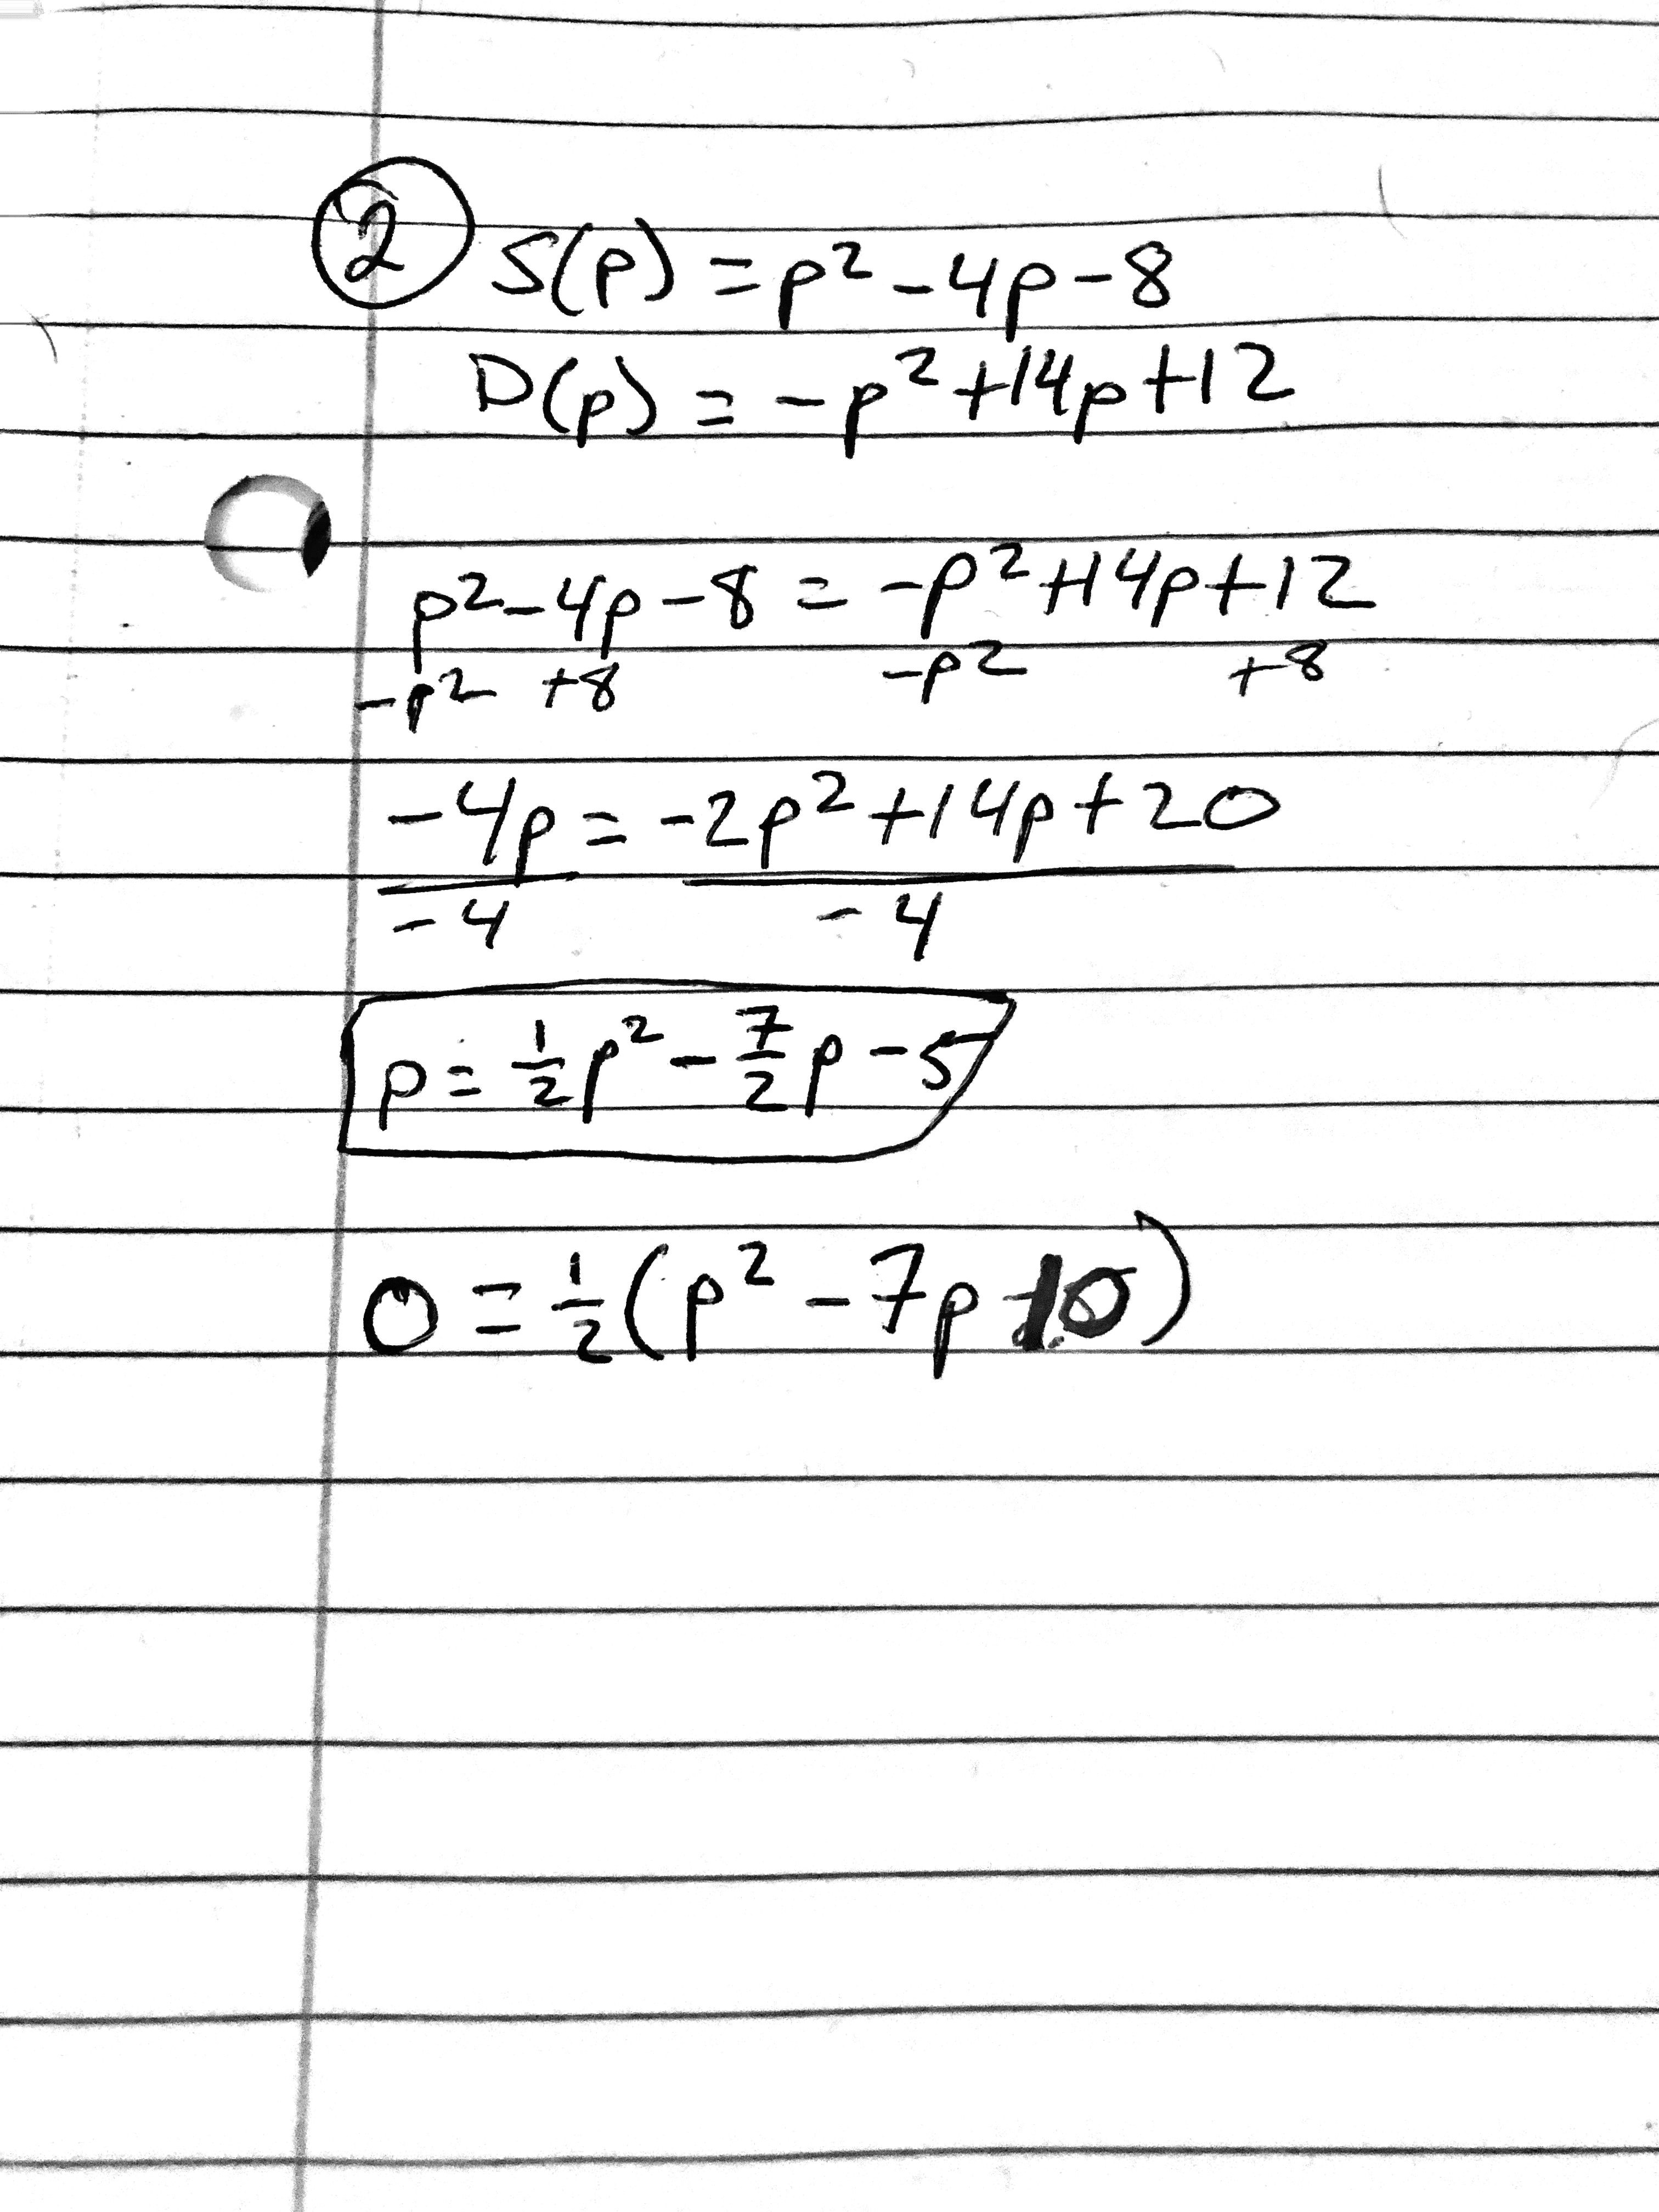 ② S(p) = p² - 4p - 8
D(p) = -p² + 14p + 12
p² - 4p - 8 = -p² + 14p + 12
-p² +8 -p² +8
-4p = -2p² + 14p + 20
-4 -4
p = 1/2 p² - 7/2 p - 5
0 = 1/2 (p² - 7p 10)